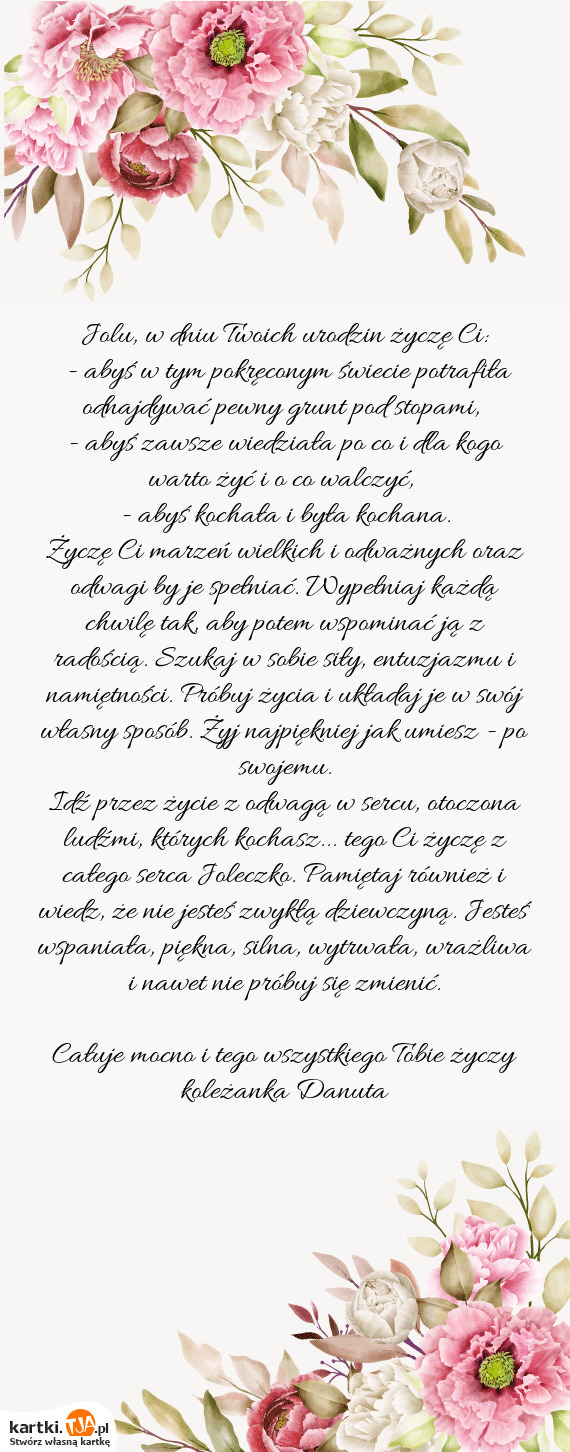 Jolu, w dniu Twoich urodzin życzę Ci:
- abyś w tym pokręconym świecie potrafiła
odnajdywać pewny grunt pod stopami,
- abyś zawsze wiedziała po co i dla kogo
warto żyć i o co walczyć,
- abyś kochała i była kochana.
Życzę Ci marzeń wielkich i odważnych oraz
odwagi by je spełniać. Wypełniaj każdą
chwilę tak, aby potem wspominać ją z
radością. Szukaj w sobie siły, entuzjazmu i
namiętności. Próbuj życia i układaj je w swój
własny sposób. Żyj najpiękniej jak umiesz - po
swojemu.
Idź przez życie z odwagą w sercu, otoczona
ludźmi, których kochasz... tego Ci życzę z
całego serca Joleczko. Pamiętaj również i
wiedz, że nie jesteś zwykłą dziewczyną. Jesteś
wspaniała, piękna, silna, wytrwała, wrażliwa
i nawet nie próbuj się zmienić.
Całuje mocno i tego wszystkiego Tobie życzy
koleżanka Danuta
kartki.TJA.pl
Stwórz własną kartkę